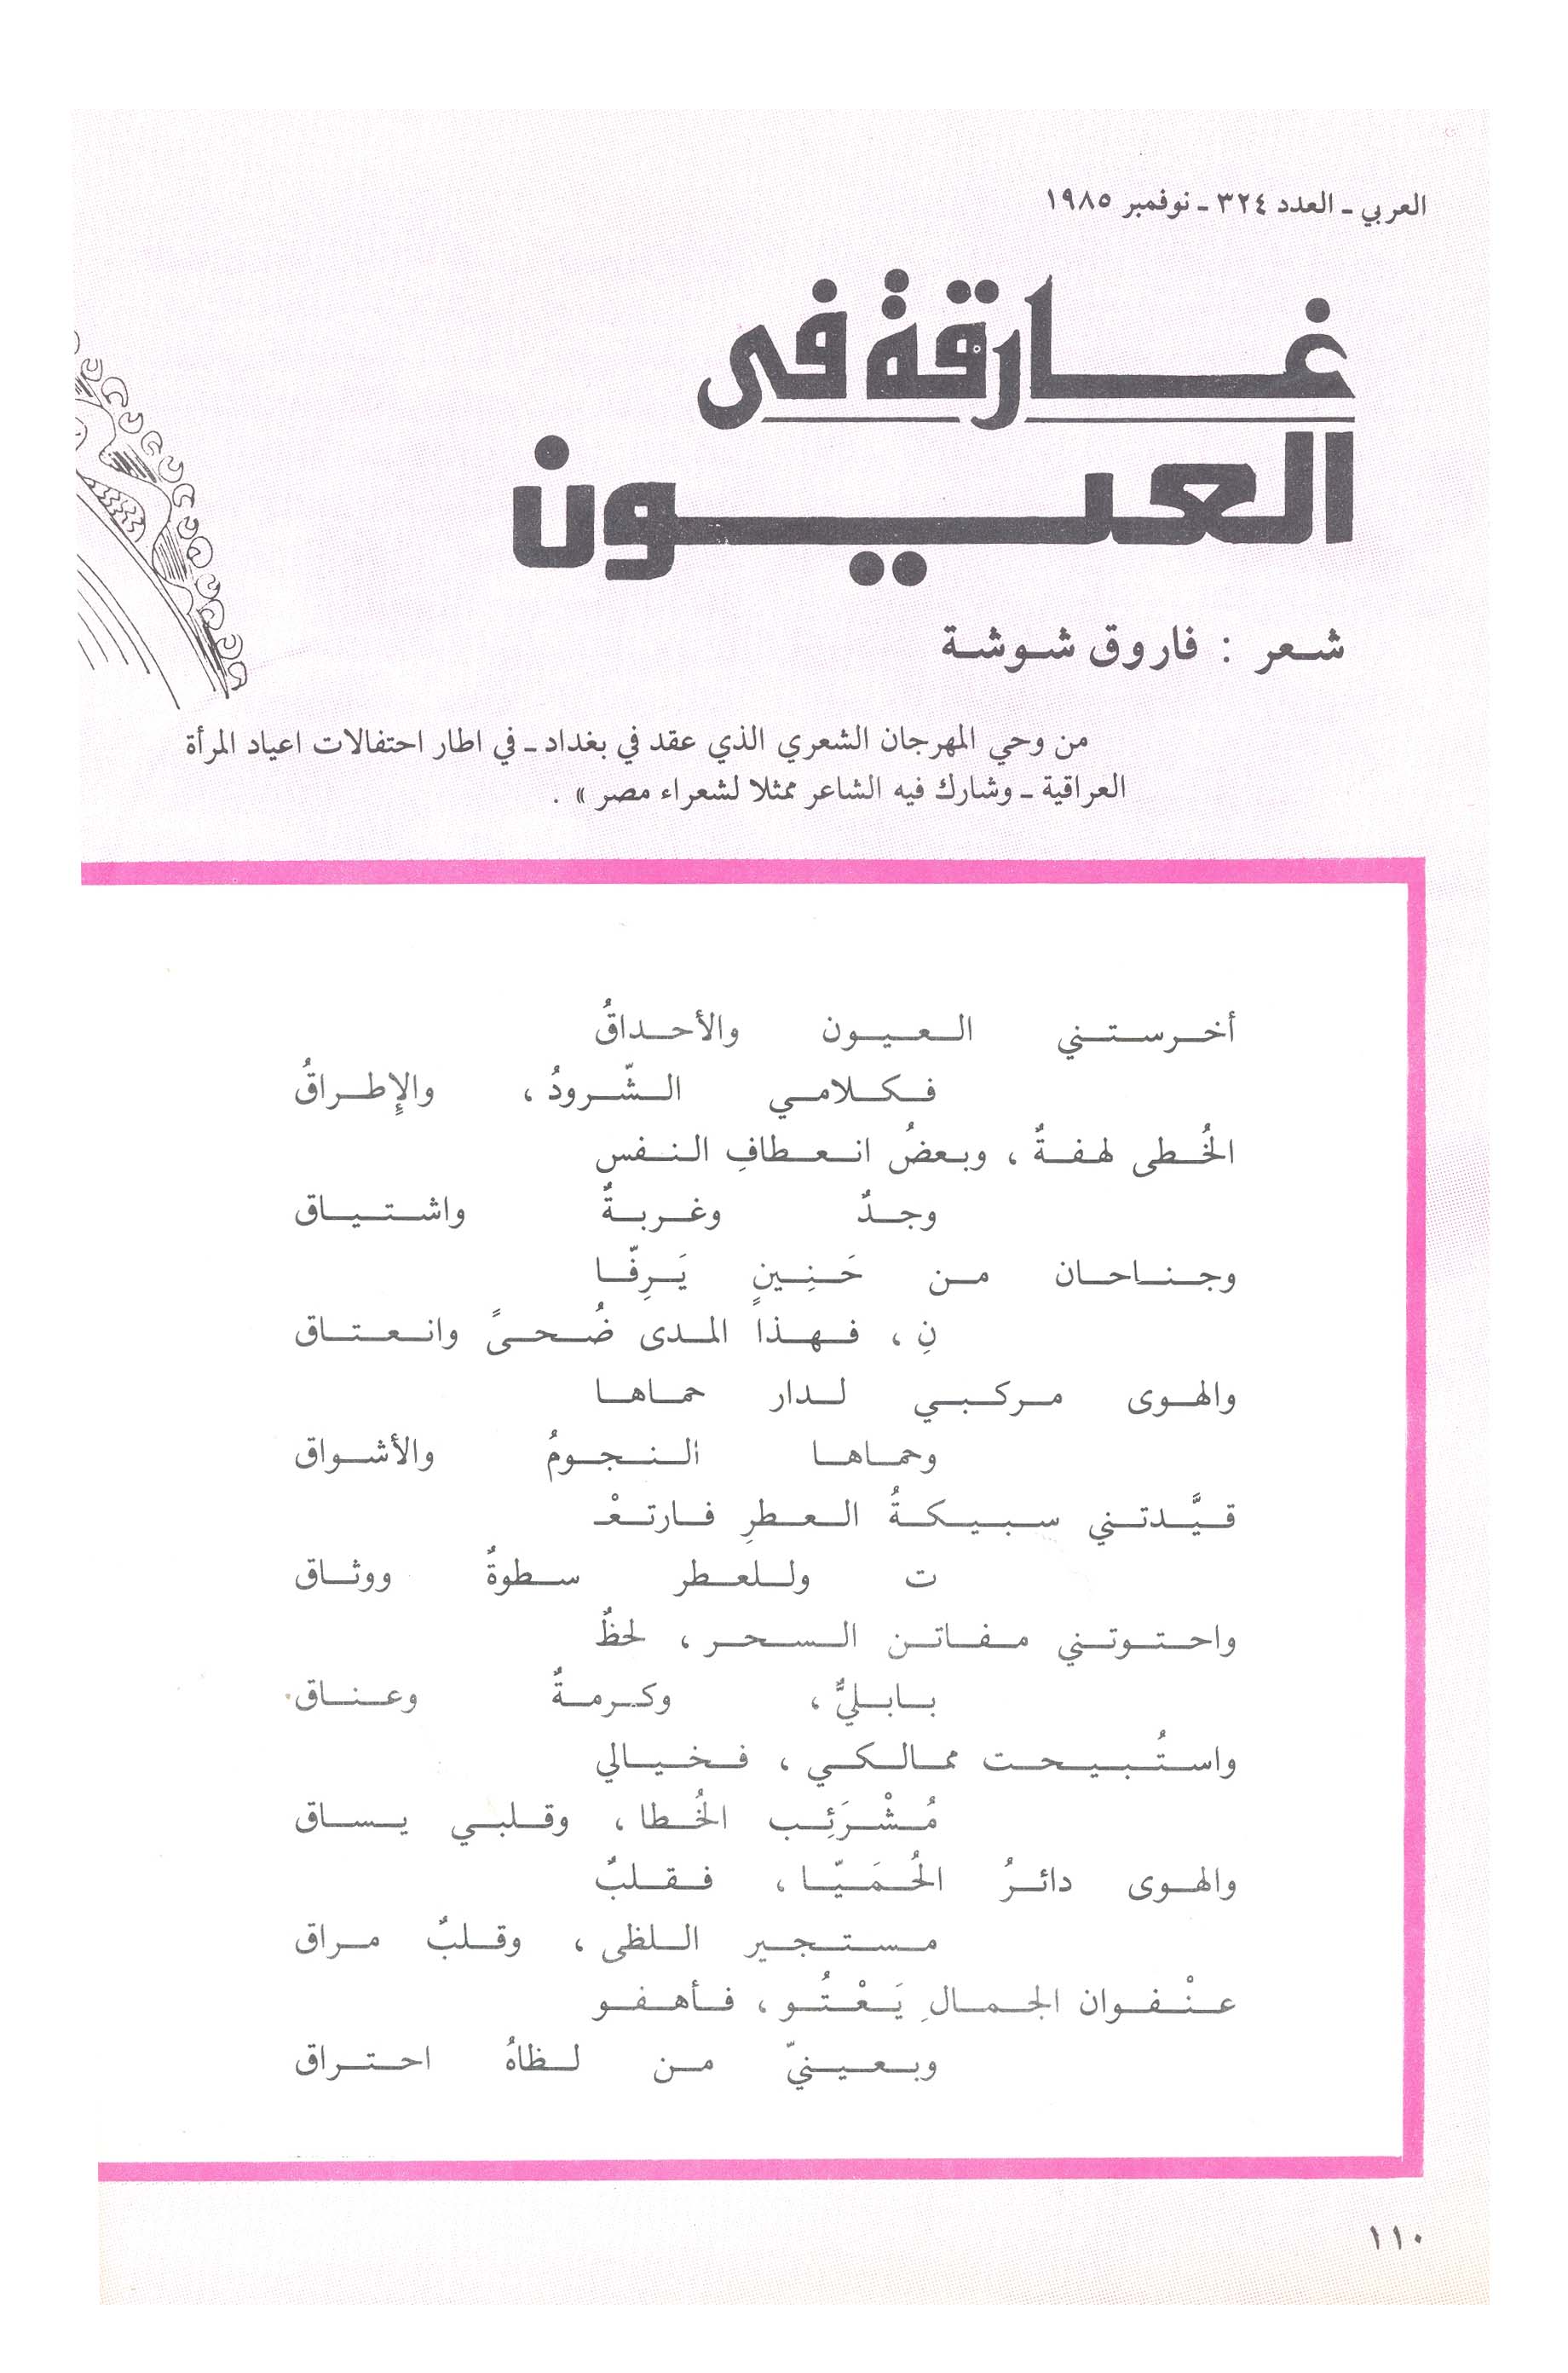 العربي ـ العدد ٣٢٤ ـ نوفمبر ١٩٨٥
غارقة فى
العيون
شعر : فاروق شوشة
من وحي المهرجان الشعري الذي عقد في بغداد ـ في اطار احتفالات اعياد المرأة
العراقية ـ وشارك فيه الشاعر ممثلا لشعراء مصر » .
أخرستني العيون والأحداقُ
فكلامي الشّرودُ ، والإِطراقُ
الخُطى لهفةٌ ، وبعضُ انعطافِ النفس
وجدٌ وغربةٌ واشتياق
وجناحان من حَنِينٍ يَرِفّا
نِ ، فهذا المدى ضُحىً وانعتاق
والهوى مركبي لدار حماها
وحماها النجومُ والأشواق
قيَّدتني سبيكةُ العطرِ فارتعْـ
ت وللعطر سطوةٌ ووثاق
واحتوتني مفاتن السحر ، لحظٌ
بابليٌّ ، وكرمةٌ وعناق
واستُبيحت ممالكي ، فخيالي
مُشْرَئِب الخُطا ، وقلبي يساق
والهوى دائرُ الحُمَيّا ، فقلبٌ
مستجير اللظى ، وقلبٌ مراق
عنْفوان الجمالِ يَعْتُو ، فأهفو
وبعينيّ من لظاهُ احتراق
١١٠